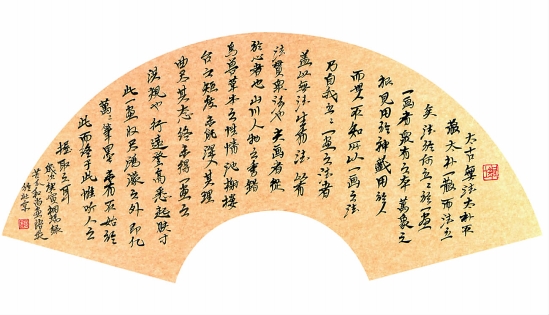 太古無法太朴不
散太朴一散而法立
矣法於何立々於一畫
一畫者眾有之本萬象之
根見用於神藏用於人
而世人不知所以一畫之法
乃自我立々一畫之法者
蓋以無法生有法以有
法貫眾法也夫畫者從
於心者也山川人物之秀錯
鳥獸草木之性情池榭樓
台之矩度未能深入其理
曲盡其态終未得一畫之
洪規也行遠登高悉起膚寸
此一畫收盡鴻濛之外即億
萬萬筆墨未有不始於
此而終于此惟聽人之
握取之耳
苦瓜和尚畫語錄